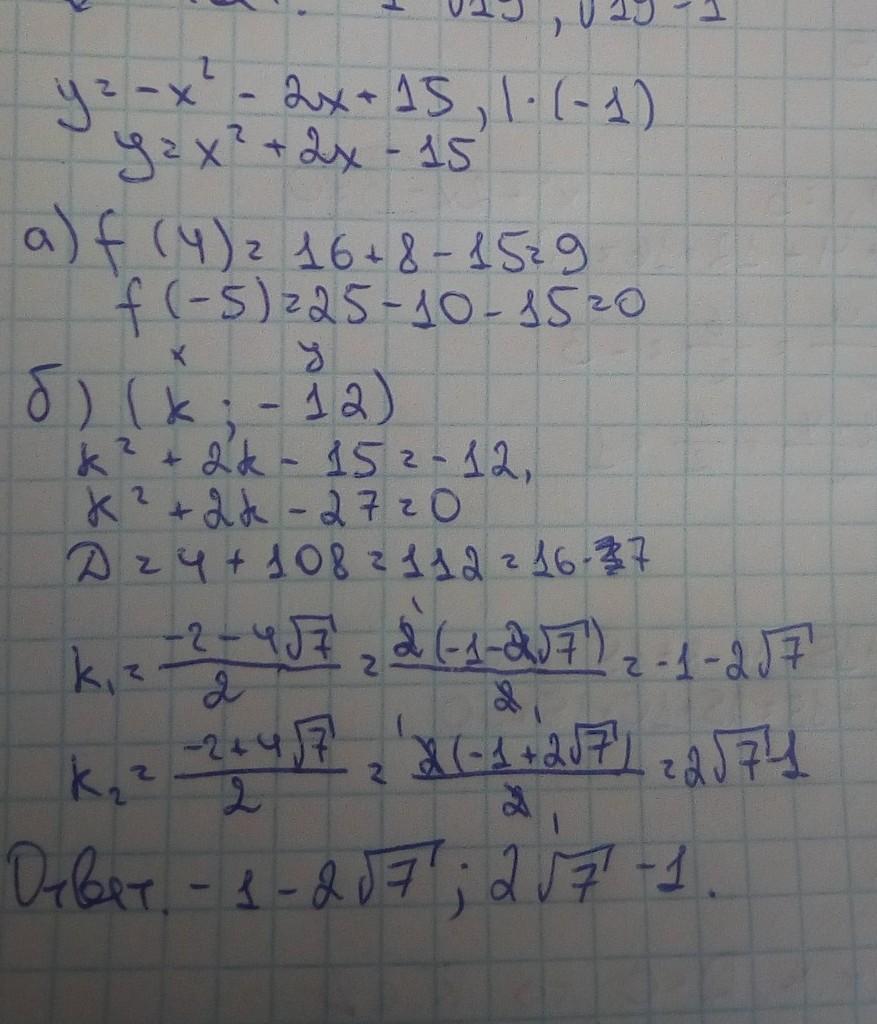 y = -x² - 2x + 15, | · (-1)
y = x² + 2x - 15
а) f (4) = 16 + 8 - 15 = 9
f (-5) = 25 - 10 - 15 = 0
x y
б) (k ; -12)
k² + 2k - 15 = -12,
k² + 2k - 27 = 0
D = 4 + 108 = 112 = 16 · 7
k₁ = (-2 - 4√7)/2 = 2(-1 - 2√7)/2 = -1 - 2√7
k₂ = (-2 + 4√7)/2 = 2(-1 + 2√7)/2 = 2√7 - 1
Ответ. -1 - 2√7 ; 2√7 - 1.